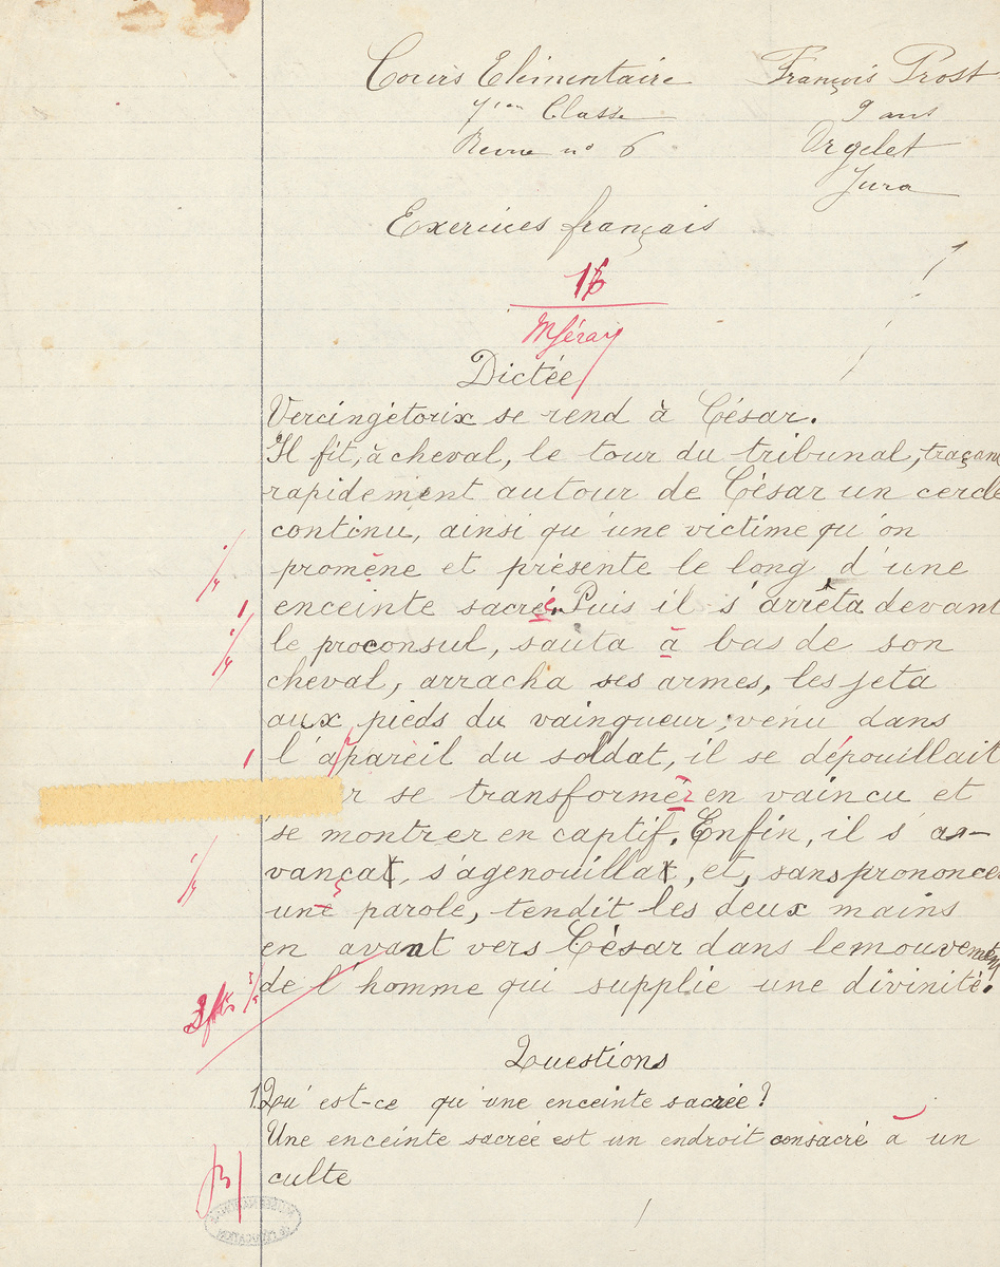 Cours Elémentaire François Prost
1ière Classe 9 ans
Revue n° 6 Orgelet
Jura
Exercices français
Dictée
Vercingétorix se rend à César.
Il fit, à cheval, le tour du tribunal, traçant
rapidement autour de César un cercle
continu, ainsi qu'une victime qu'on
promène et présente le long d'une
enceinte sacrée. Puis il s'arrêta devant
le proconsul, sauta à bas de son
cheval, arracha ses armes, les jeta
aux pieds du vainqueur ; venu dans
l'apareil du soldat, il se dépouillait
r se transformer en vaincu et
se montrer en captif. Enfin, il s'a-
vança, s'agenouilla, et, sans prononcer
une parole, tendit les deux mains
en avant vers César dans le mouvement
de l'homme qui supplie une divinité.
Questions
1 Qu'est-ce qu'une enceinte sacrée ?
Une enceinte sacrée est un endroit consacré à un
culte